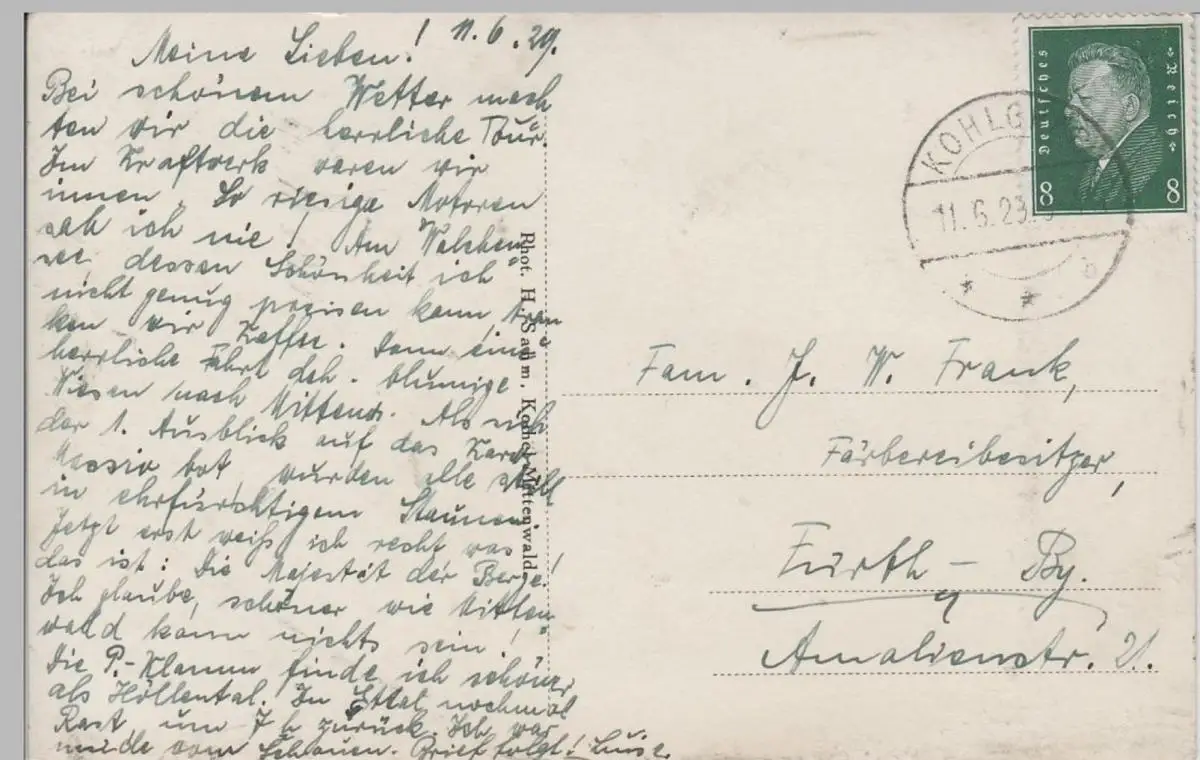 11.6.29.
Meine Lieben!
Bei schönem Wetter mach
ten wir die herrliche Tour.
Im Kraftwerk waren wir
innen. So riesige Motoren
sah ich nie! Am Walchen"
see, dessen Schönheit ich
nicht genug preisen kann, tran
ken wir Kaffee. Dann eine
herrliche Fahrt dch. blumige
Wiesen nach Mittenw. Als sich
der 1. Ausblick auf das Karw.
Massiv bot wurden alle still
in ehrfürchtigem Staunen.
Jetzt erst weiß ich recht was
das ist: Die Majestät der Berge!
Ich glaube, schöner wie Mitten"
wald kann nichts sein!
Die P.-Klamm finde ich schöner
als Höllental. In Ettal nochmal
Rast um 7 h zurück. Ich war
müde vom Schauen. Brief folgt! Luise.
Phot. H. Sadm. Kochel-Mittenwald.
Deutsches Reich
8 8
KOHLG
11.6.29
b
Fam. J. W. Frank,
Färbereibesitzer,
Fürth - By.
Amalienstr. 21.